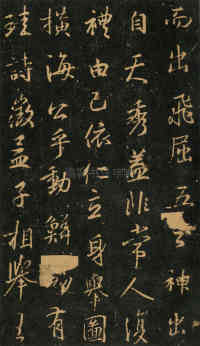 而出飛屈五神出
自天秀蓋非常人復
禮由己依仁立身舉圖
橫海公乎動鱗有
詩徵孟子相舉